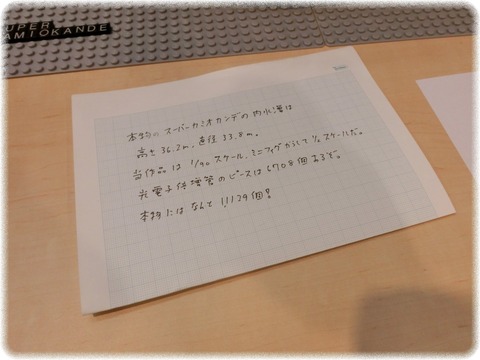 SUPER
KAMIOKANDE
本物の スーパーカミオカンデの内水槽は
高さ 36.2m, 直径 33.8m。
当作品は 1/90 スケール, ミニフィグからして 1/ スケールだ。
光電子倍増管のピースは 6708個あるぞ。
本物にはなんと 11,129個!